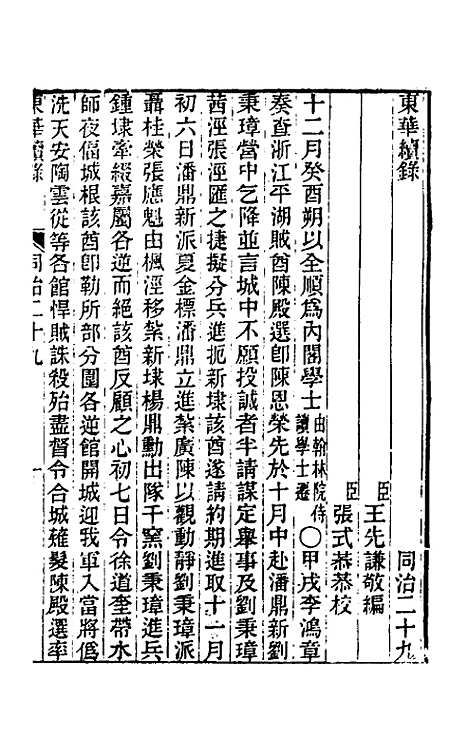 東華續錄
同治二十九
臣王先謙敬編
臣張式恭恭校
十二月癸酉朔以全順爲內閣學士由翰林院侍讀學士遷〇甲戌李鴻章
奏查浙江平湖賊酋陳殿選卽陳恩榮先於十月中赴潘鼎新劉
秉璋營中乞降並言城中不願投誠者半請謀定舉事及劉秉璋
茜涇張涇匯之捷擬分兵進扼新埭該酋遂請約期進取十一月
初六日潘鼎新派夏金標潘鼎立進紮廣陳以觀動靜劉秉璋派
聶桂榮張應魁由楓涇移紮新埭楊鼎勳出隊千窰劉秉璋進兵
鍾埭牽綴嘉屬各逆而絕該酋反顧之心初七日令徐道奎帶水
師夜偪城根該酋卽勒所部分圍各逆館開城迎我軍入當將僞
洗天安陶雲從等各館悍賊誅殺殆盡督令合城薙髮陳殿選率
東華續錄
同治二十九
一